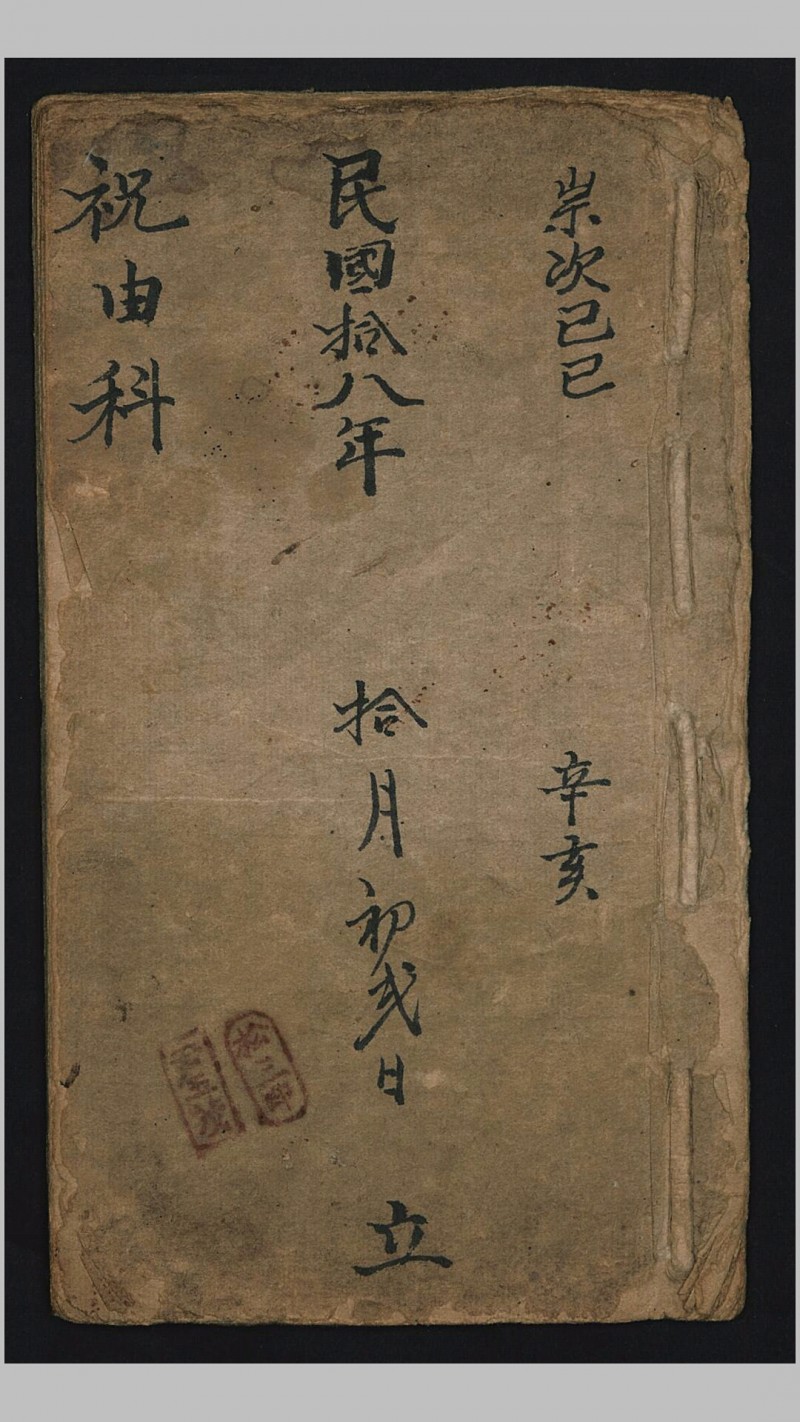 崇次己巳 辛亥
民國拾八年 拾月初弍日 立
祝由科